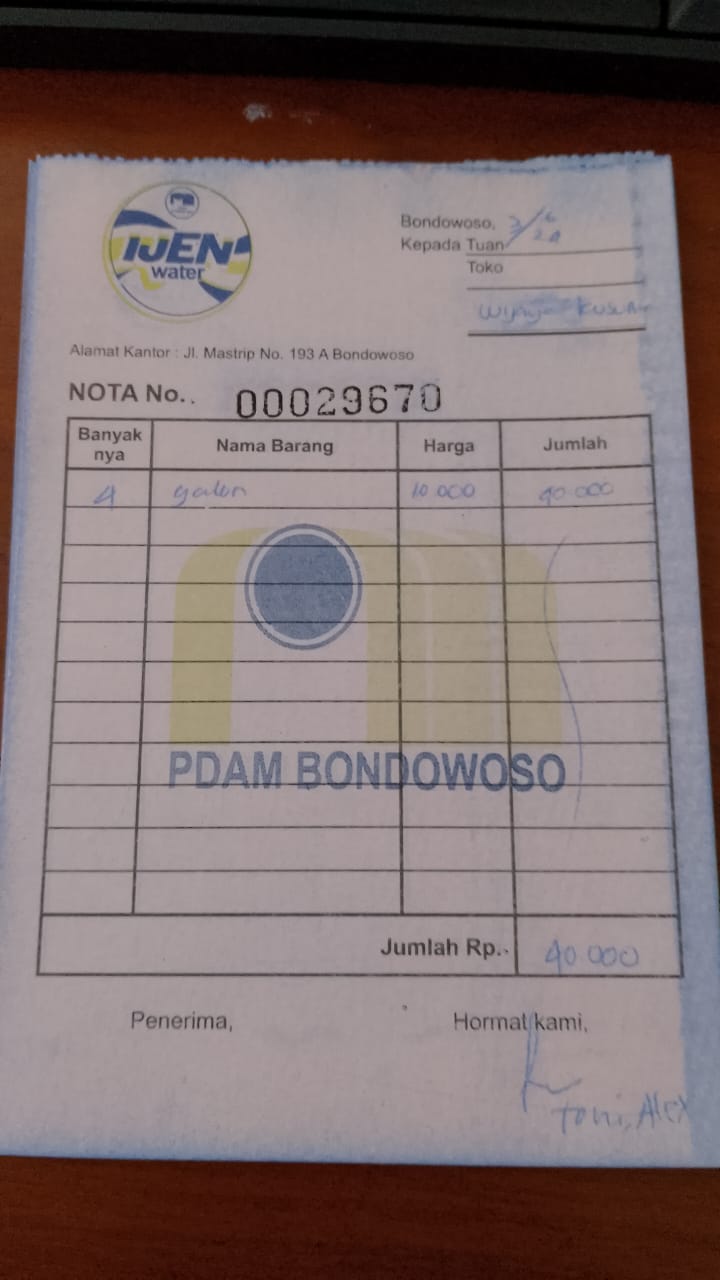 IJEN
water
Bondowoso, 3/6
24
Kepada Tuan
Toko
Wijaya Kusuma
Alamat Kantor : Jl. Mastrip No. 193 A Bondowoso
NOTA No.. 00029670
Banyak nya Nama Barang Harga Jumlah
4 galon 10.000 40.000
PDAM BONDOWOSO
Jumlah Rp.. 40.000
Penerima, Hormat kami,
Toni, Alex